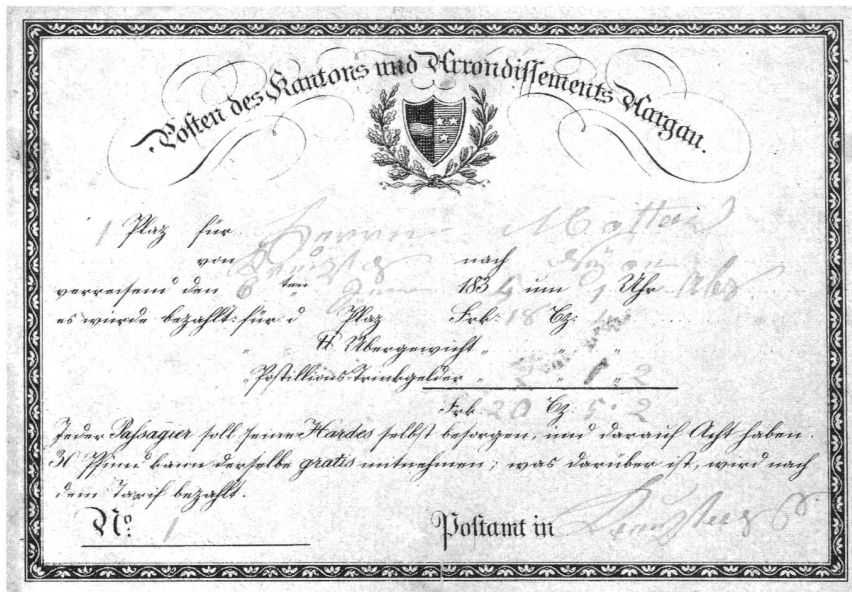 Posten des Kantons und Arrondissements Aargau.
1 Plaz für Herrn
von nach
verreisend den 6 ten 1834 um 1 Uhr
es wurde bezahlt: für d Plaz Frk: 18 Bz:
" " ℔ Übergewicht " " "
" Postillions-Trinkgelder " 2 " 5 " 2
Frk 20 Bz 5 " 2
Jeder Passagier soll seine Hardes selbst besorgen, und darauf Acht haben.
30 Pfund kann derselbe gratis mitnehmen; was darüber ist, wird nach
dem Tarif bezahlt.
No. 1 Postamt in